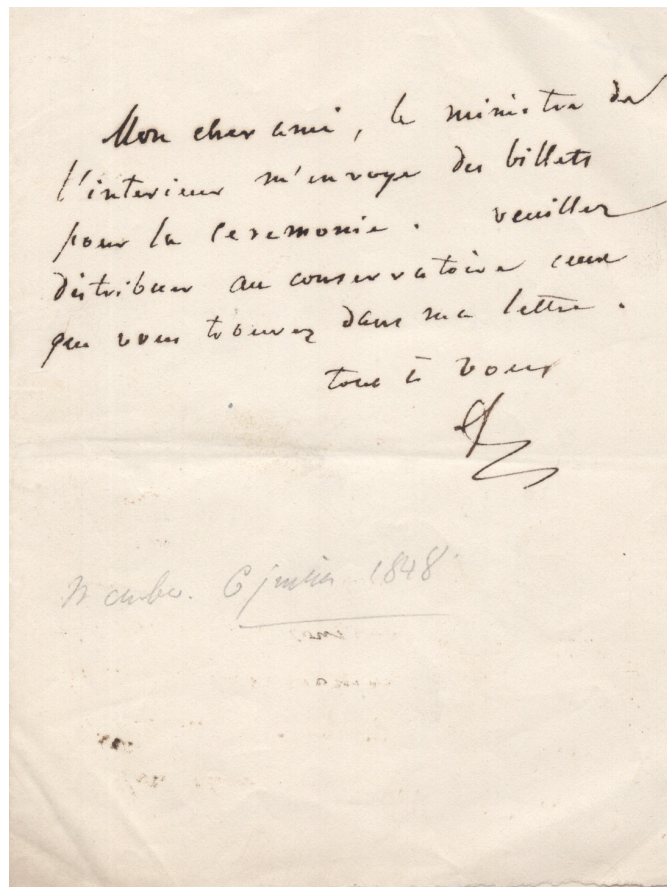 Mon cher ami, le ministre de
l'interieur m'envoye des billets
pour la ceremonie. veuillez
distribuer au conservatoire ceux
que vous trouvez dans ma lettre.
tout à vous
6 juillet 1848